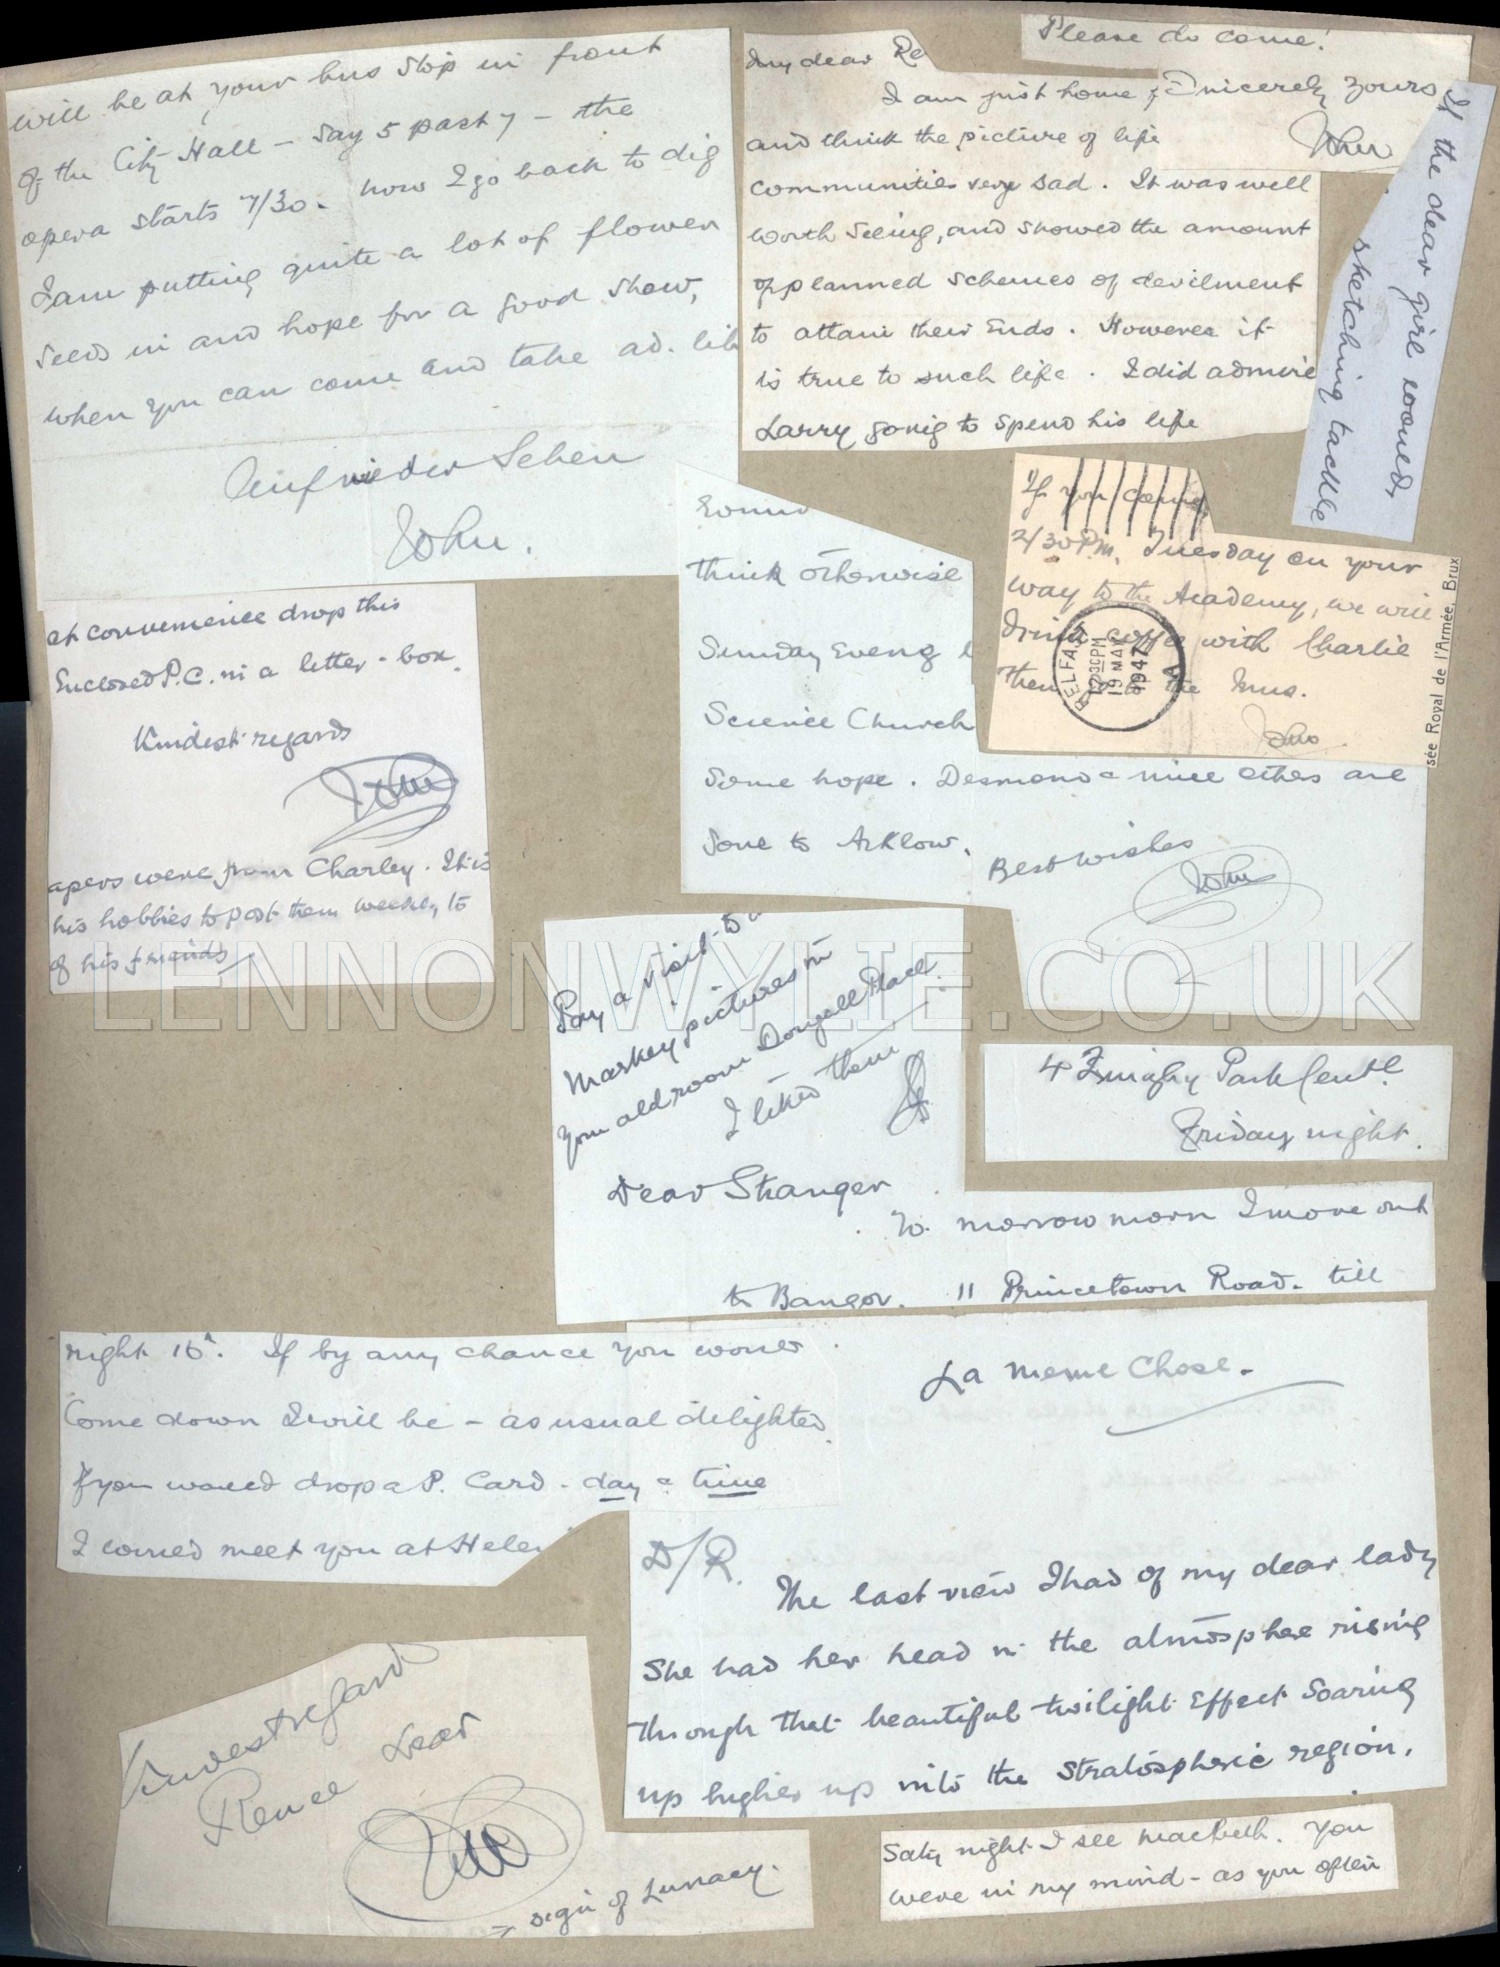 will be at your bus stop in front
of the City Hall - say 5 past 7 - the
opera starts 7/30. now I go back to dig
I am putting quite a lot of flower
seeds in and hope for a good show,
when you can come and take ad. lib
Auf wieder Sehen
John.
My dear Re
I am just home
and think the picture of life
communities very sad. It was well
worth seeing, and showed the amount
of planned schemes of devilment
to attain their ends. However it
is true to such life. I did admire
Larry going to spend his life
Please do come!
Sincerely yours
John
If the dear girl would,
sketching tackle
at convenience drop this
Enclosed P.C. in a letter-box.
Kindest regards
John
apers were from Charley. It is
his hobbies to post them weekly to
of his friends
think otherwise
Sunday Eveng
Science Church
Some hope. Desmond & nice ethos are
gone to Arklow.
Best wishes
John
If you come
2/30 P.M. Tuesday on your
way to the Academy, we will
drink coffee with Charlie
then to the Mus.
John
BELFAST
12 30 PM
19 MAR
1947
A
sée Royal de l'Armée, Brux
Pay a visit to
Markey pictures in
your old room Donegall Place.
I liked them
J
Dear Stranger
4 Finaghy Park Centl.
Friday night.
To morrow morn I move out
to Bangor. 11 Princetown Road. till
night 16th. If by any chance you would
come down I will be - as usual delighted.
If you would drop a P. Card - day & time
I would meet you at Helen
La meme Chose.
D/R.
The last view I had of my dear lady
She had her head in the atmosphere rising
through that beautiful twilight effect soaring
up higher up into the stratospheric region.
Kindest regards
Renee Dear
John
→ sign of Lunacy.
Saty night I see Macbeth. You
were in my mind - as you often
LENNONWYLIE.CO.UK